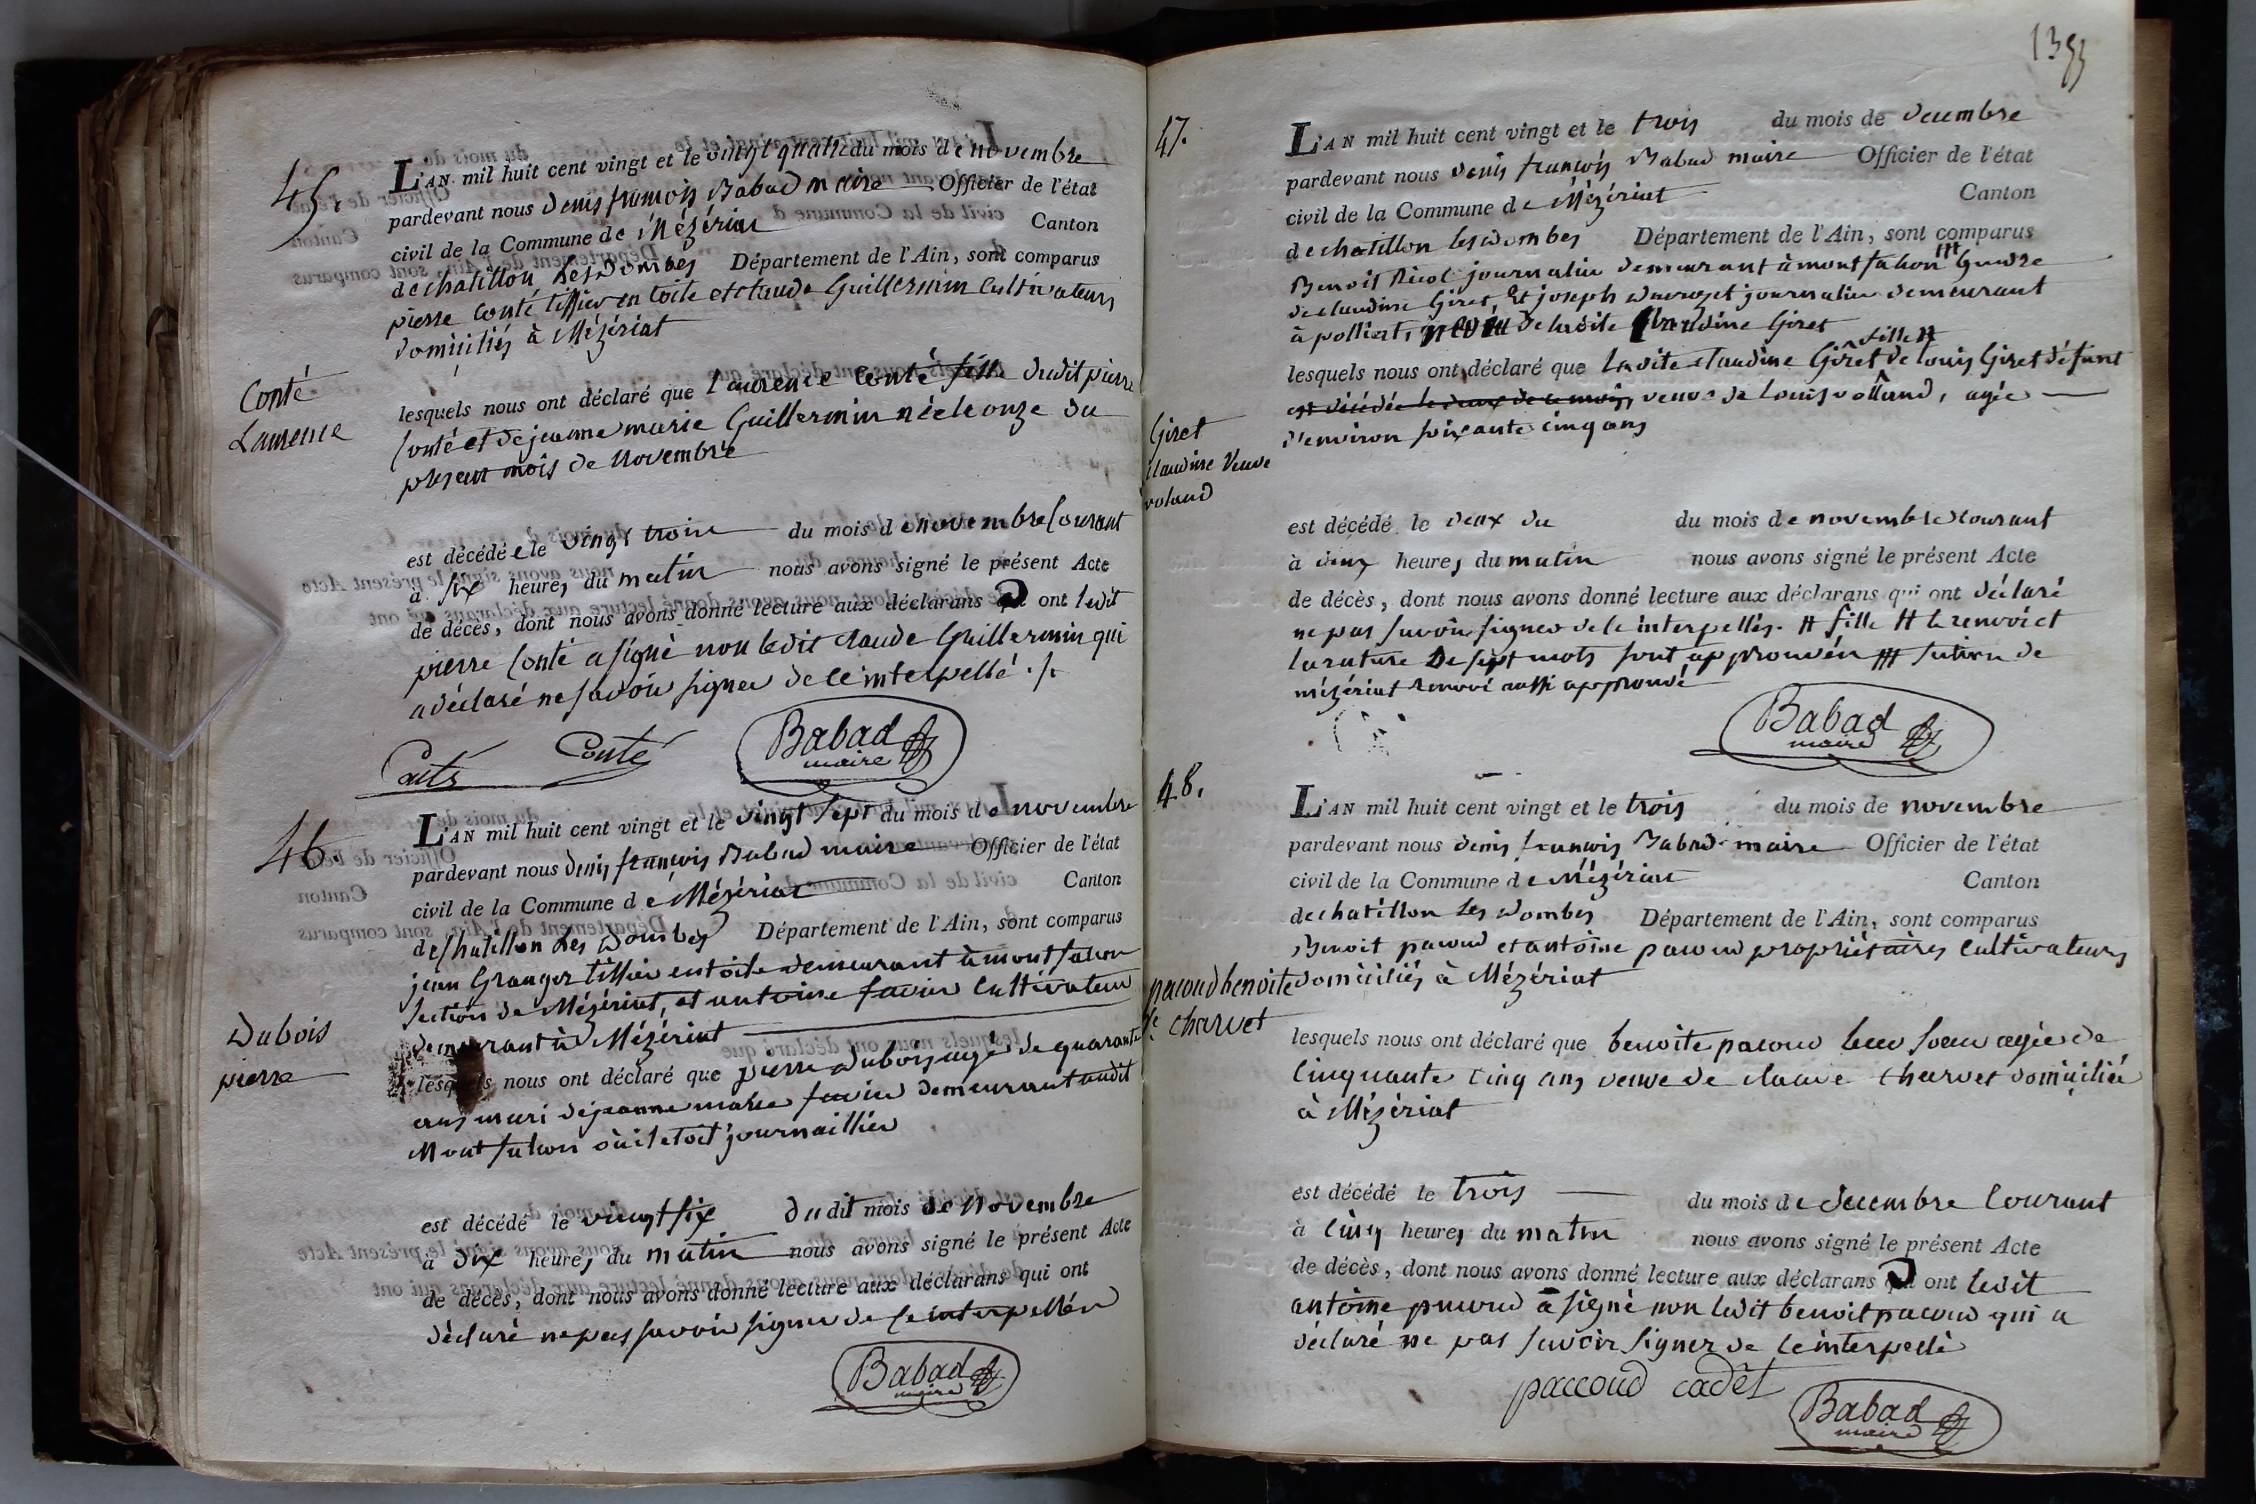 45.
L'AN mil huit cent vingt et le vingt quatre du mois de novembre
pardevant nous denis françois Babad maire Officier de l'état
civil de la Commune de Mézériat Canton
de chatillon les Dombes Département de l'Ain, sont comparus
pierre Conté tissier en toile et claude Guillermin Cultivateurs
domiciliés à Mézériat
Conté
Laurence
lesquels nous ont déclaré que Laurence Conté fille dudit pierre
Conté et de jeanne marie Guillermin née le onze du
présent mois de Novembre
est décédée le vingt trois du mois de novembre Courant
à six heures du matin nous avons signé le présent Acte
de décès, dont nous avons donné lecture aux déclarans ont ledit
pierre Conté a signé non ledit Claude Guillermin qui
a déclaré ne savoir signer de ce interpellé ./.
Conté Conté Babad
maire
46.
L'AN mil huit cent vingt et le vingt sept du mois de novembre
pardevant nous denis françois Babad maire Officier de l'état
civil de la Commune de Mézériat Canton
de Chatillon les Dombes Département de l'Ain, sont comparus
jean Granger tissier en toile demeurant à montfalcon
section de Mézériat, et antoine favier Cultivateur
demeurant à Mézériat
Dubois
pierre
lesquels nous ont déclaré que pierre Dubois agé de quarante
ans mari de jeanne marie favier demeurant audit
Montfalcon où il etoit journaillier
est décédé le vingt six dudit mois de Novembre
à dix heures du matin nous avons signé le présent Acte
de décès, dont nous avons donné lecture aux déclarans qui ont
déclaré ne pas savoir signer de ce interpellés
Babad
maire
1353
47.
L'AN mil huit cent vingt et le trois du mois de decembre
pardevant nous denis françois Babad maire Officier de l'état
civil de la Commune de Mézériat Canton
de chatillon les Dombes Département de l'Ain, sont comparus
Benoit Nicol journalier demeurant à montfalcon ### Gendre
de claudine Giret, Et joseph journalier demeurant
à polliat, neveu de ladite Claudine Giret
lesquels nous ont déclaré que ladite claudine Giret fille # de Louis Giret défunt
est décédée le deux de ce mois, veuve de Louis volland, agée
d'environ soixante cinq ans
Giret
claudine Veuve
voland
est décédé le deux du du mois de novembre courant
à deux heures du matin nous avons signé le présent Acte
de décès, dont nous avons donné lecture aux déclarans qui ont déclaré
ne pas savoir signer de ce interpellés. # fille # le renvoi et
la rature de sept mots sont approuvés ### section de
mézériat renvoi aussi approuvé
Babad
maire
48.
L'AN mil huit cent vingt et le trois du mois de novembre
pardevant nous denis françois Babad maire Officier de l'état
civil de la Commune de Mézériat Canton
de chatillon les Dombes Département de l'Ain, sont comparus
Benoit pacoud et antoine pacoud propriétaires Cultivateurs
domiciliés à Mézériat
pacoud benoite
Ve charvet
lesquels nous ont déclaré que benoite pacoud leur soeur agée de
Cinquante Cinq ans veuve de claude Charvet domiciliée
à Mézériat
est décédé le trois du mois de decembre Courant
à Cinq heures du matin nous avons signé le présent Acte
de décès, dont nous avons donné lecture aux déclarans ont ledit
antoine pacoud a signé non ledit benoit pacoud qui a
déclaré ne pas savoir signer de ce interpellé
paccoud cadet
Babad
maire